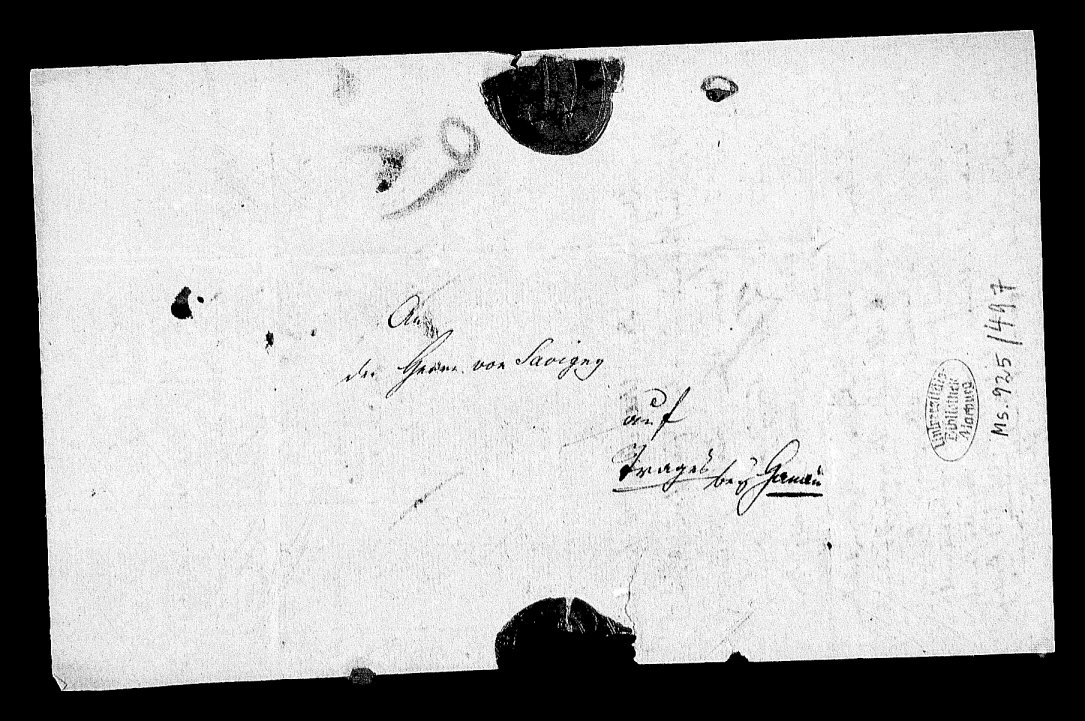 An
den Herrn von Savigny
auf
Trages bey Hanau
Universitäts-
Bibliothek
Marburg
Ms. 925/497